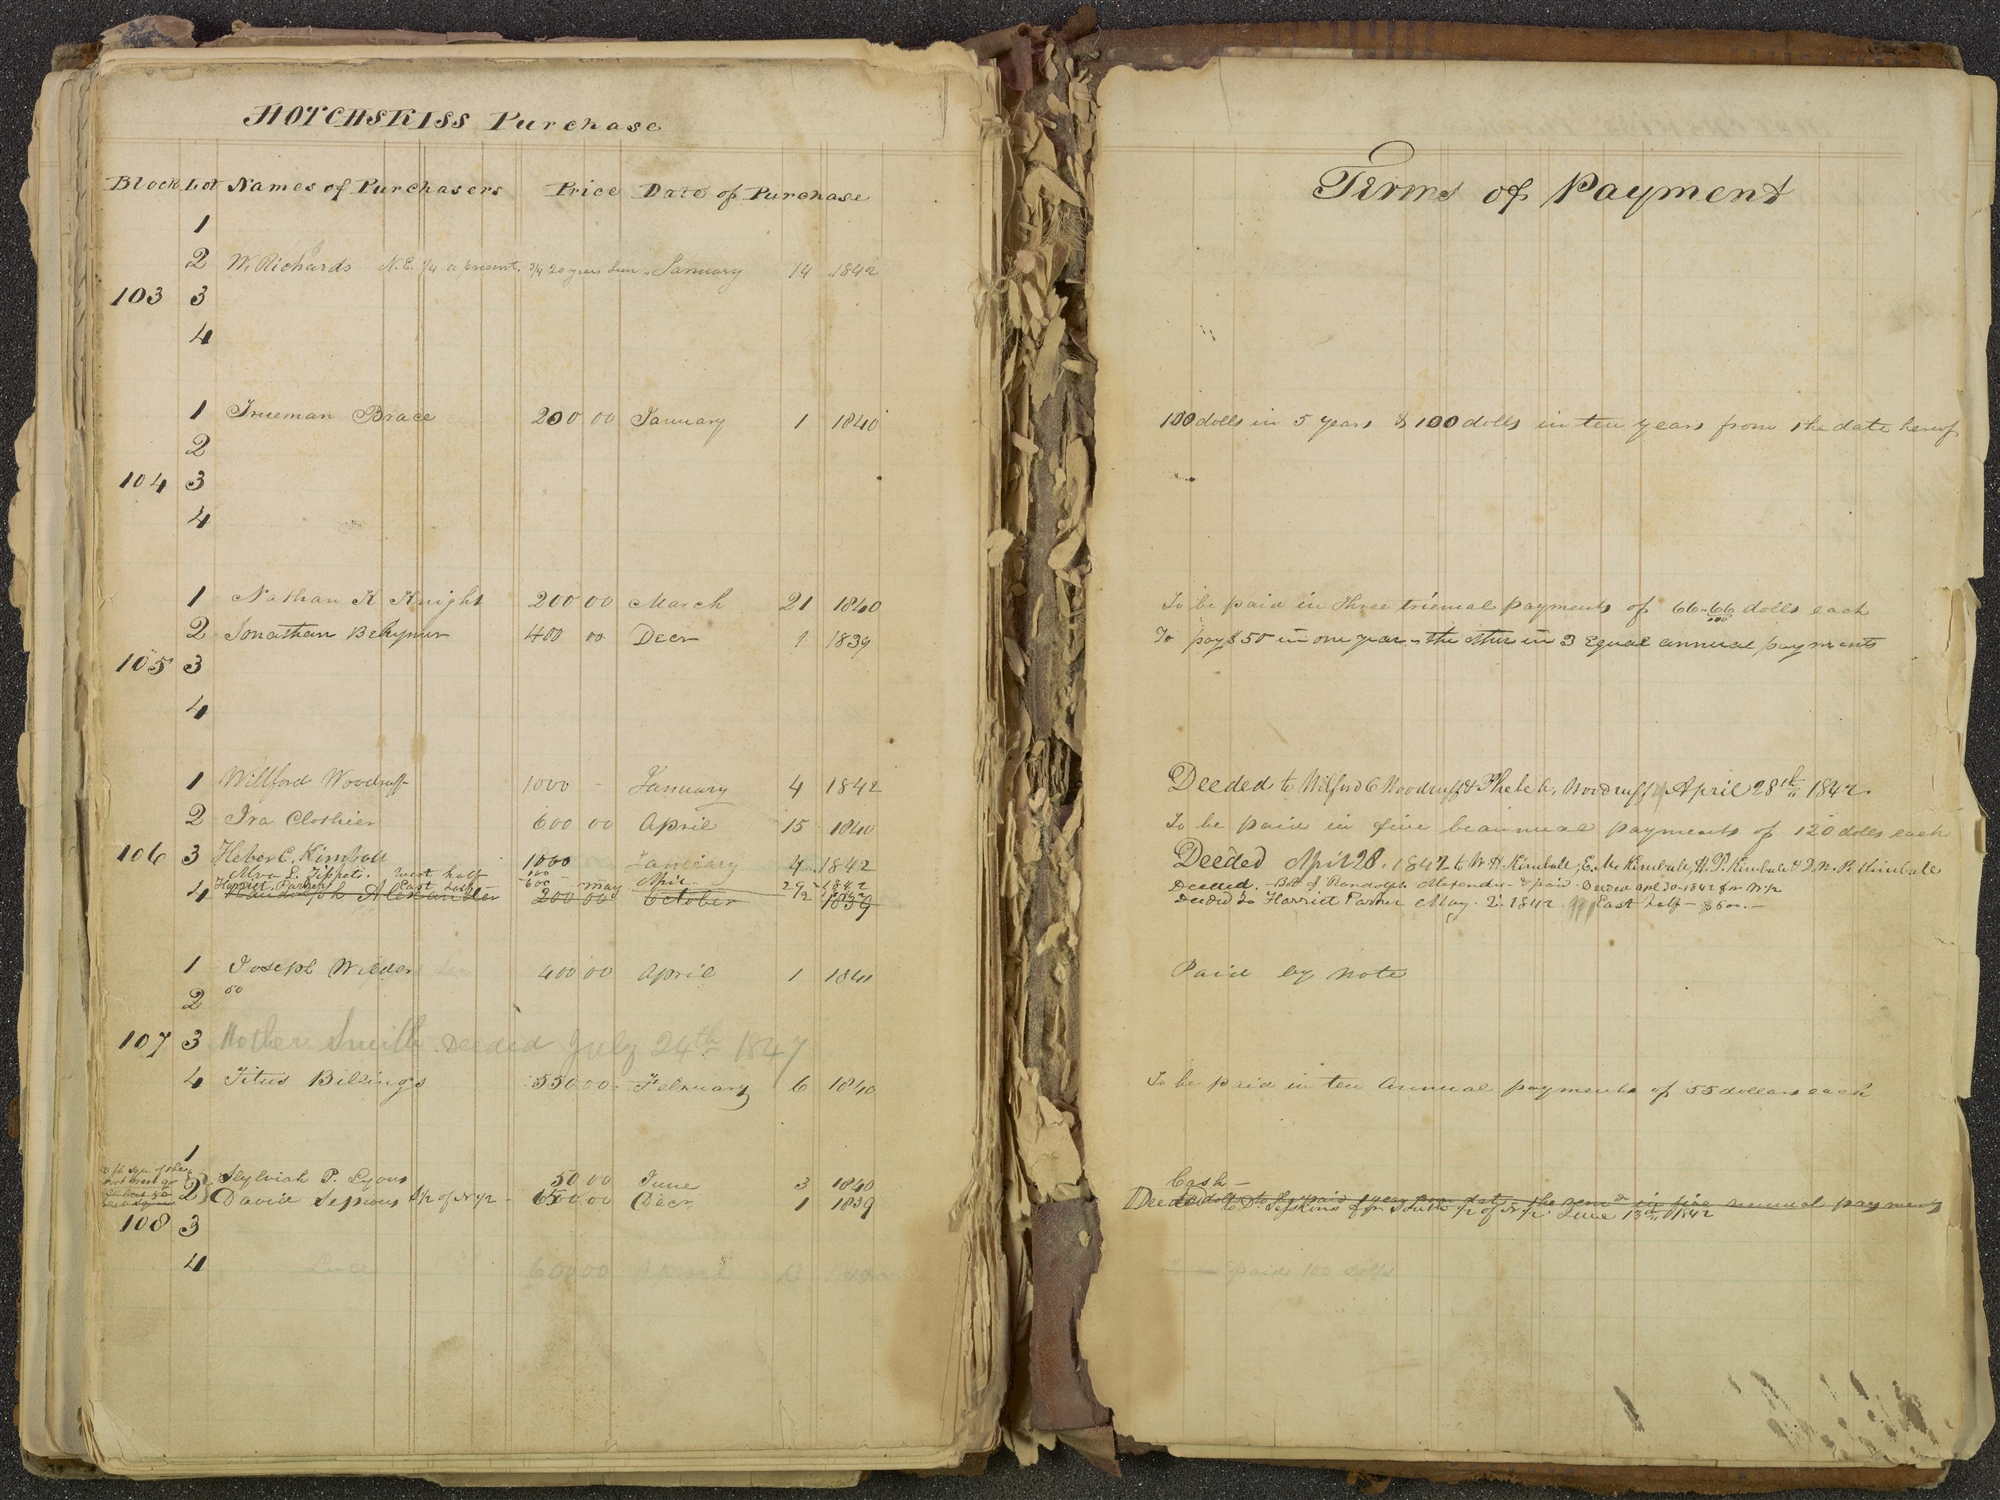 HOTCHSKISS Purchase
Block Lot Names of Purchasers Price Date of Purchase
1
2 W. Richards N.E. 1/4 a present, 3/4 20 years January 14 1842
103 3
4
1 Trueman Brace 200 00 January 1 1840
2
104 3
4
1 Nathan K Knight 200 00 March 21 1840
2 Jonathan 400 00 Decr 1 1839
105 3
4
1 Willford Woodruff 1000 - January 4 1842
2 Ira Clothier 600 00 April 15 1840
106 3 Heber C. Kimball 1000 January 4 1842
Alva L. Tippets. west half 100 Apr 29 1842
Harriet Parker East half 600 - May 2 1842
4 Randolph Alexander 200 00 October 1839
1 Joseph Wilder 400 00 April 1 1841
2 do
107 3 Mother Smith Deeded July 24th 1847
4 Titus Billings 550 00 February 6 1840
1
Sylviah P. Lyons 50 00 June 3 1840
2 David Sessions S 1/2 of N 1/2 - 650 00 Decr 1 1839
108 3
4 Luce 600 00 April
Terms of Payment
100 dolls in 5 years & 100 dolls in ten years from the date hereof
To be paid in three triennial payments of 66.66/100 dolls each
To pay $50 in one year - the other in 3 Equal annual payments
Deeded to Wilford & Woodruff & Phebe W. Woodruff April 28th 1842.
To be paid in five beannual payments of 120 dolls each
Deeded April 28. 1842 to W H Kimball, E. M. Kimball, H. P. Kimball & D. R Kimball
Deeded. Bot of Randolph Alexander - & paid. Deeded Apl 30-1842 for W 1/2
Deeded to Harriet Parker May. 2. 1842 East half - $600. -
Paid by note
To be paid in ten annual payments of 55 dollars each
Cash -
dolls to be paid 1 year from date - the remdr in five annual payments
Deeded to D. Sessions for South 1/2 of N 1/2. June 13th 1842
paid 100 dolls